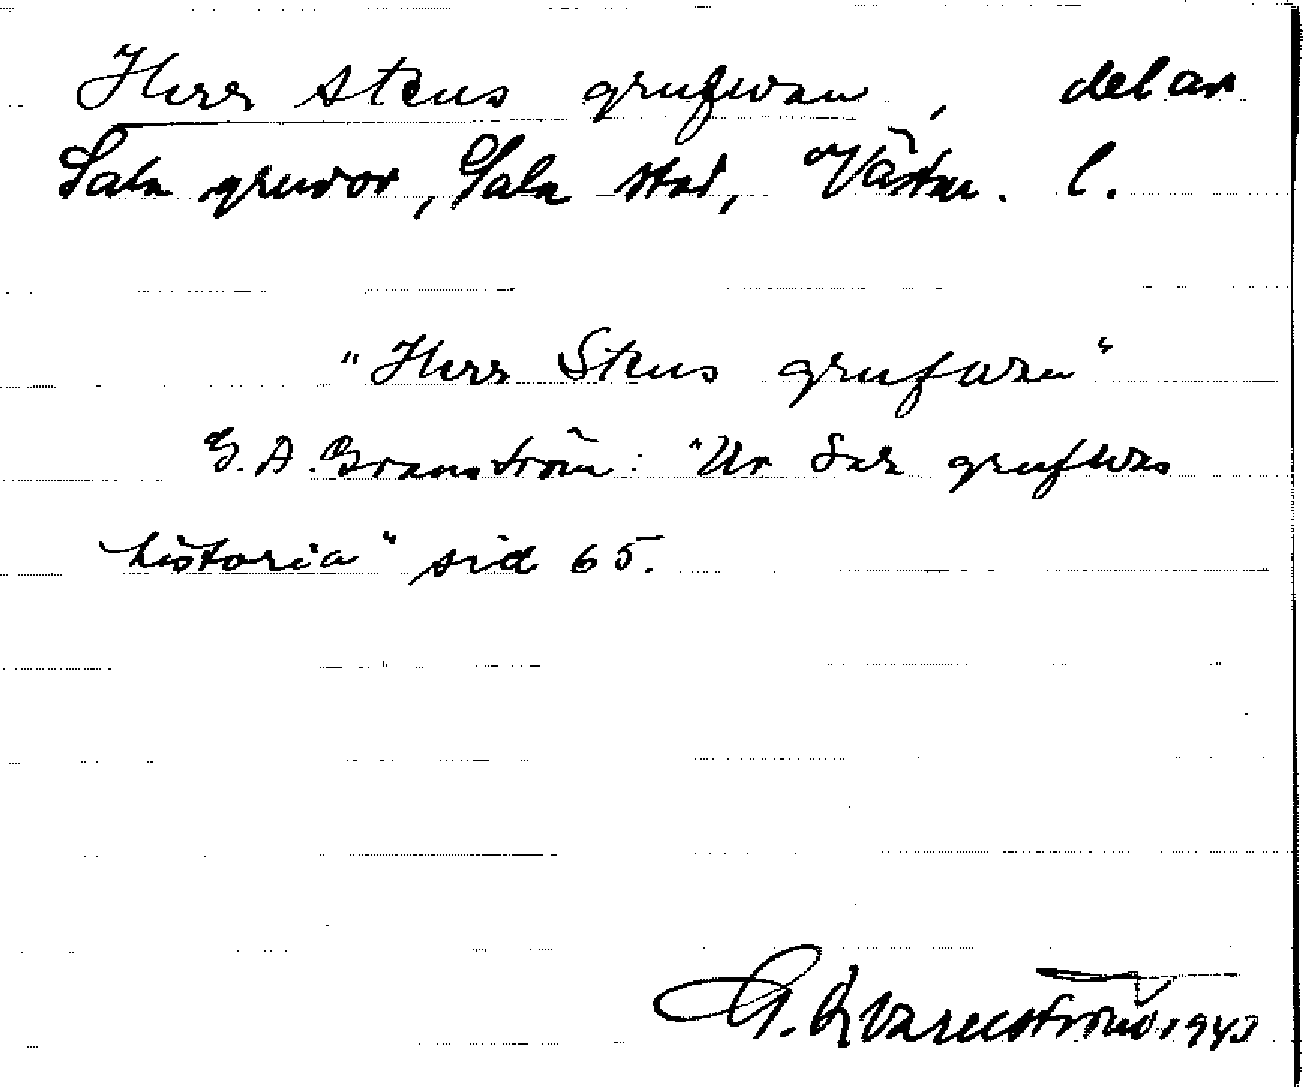 Herr Stens grufwan, del av
Sala gruvor, Sala stad, Västm. l.
"Herr Stens grufwan"
G. A. Granström: "Ur Sala grufwas
historia" sid 65.
G. Qvarnström 1943